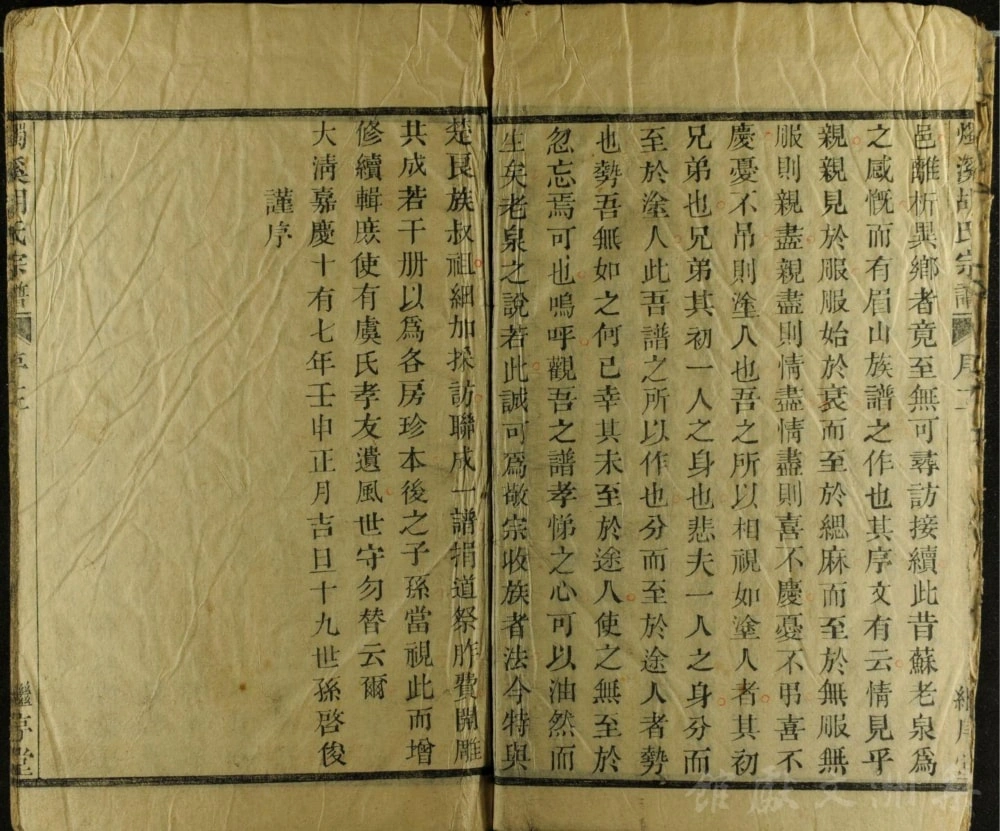 溪胡氏宗譜 序
邑離析異鄉者竟至無可尋訪接續此昔蘇老泉爲
之感慨而有眉山族譜之作也其序文有云情見乎
親親見於服服始於衰而至於緦麻而至於無服無
服則親盡親盡則情盡情盡則喜不慶憂不弔喜不
慶憂不吊則塗人也吾之所以相視如塗人者其初
兄弟也兄弟其初一人之身也悲夫一人之身分而
至於塗人此吾譜之所以作也分而至於途人者勢
也勢吾無如之何已幸其未至於途人使之無至於
忽忘焉可也嗚呼觀吾之譜孝悌之心可以油然而
生矣老泉之說若此誠可爲敬宗收族者法今特與
楚良族叔祖細加採訪聯成一譜捐道祭胙費開雕
共成若干册以爲各房珍本後之子孫當視此而增
修續輯庶使有虞氏孝友遺風世守勿替云爾
大淸嘉慶十有七年壬申正月吉旦十九世孫啓俊
謹序
溪胡氏宗譜 序 繼序堂